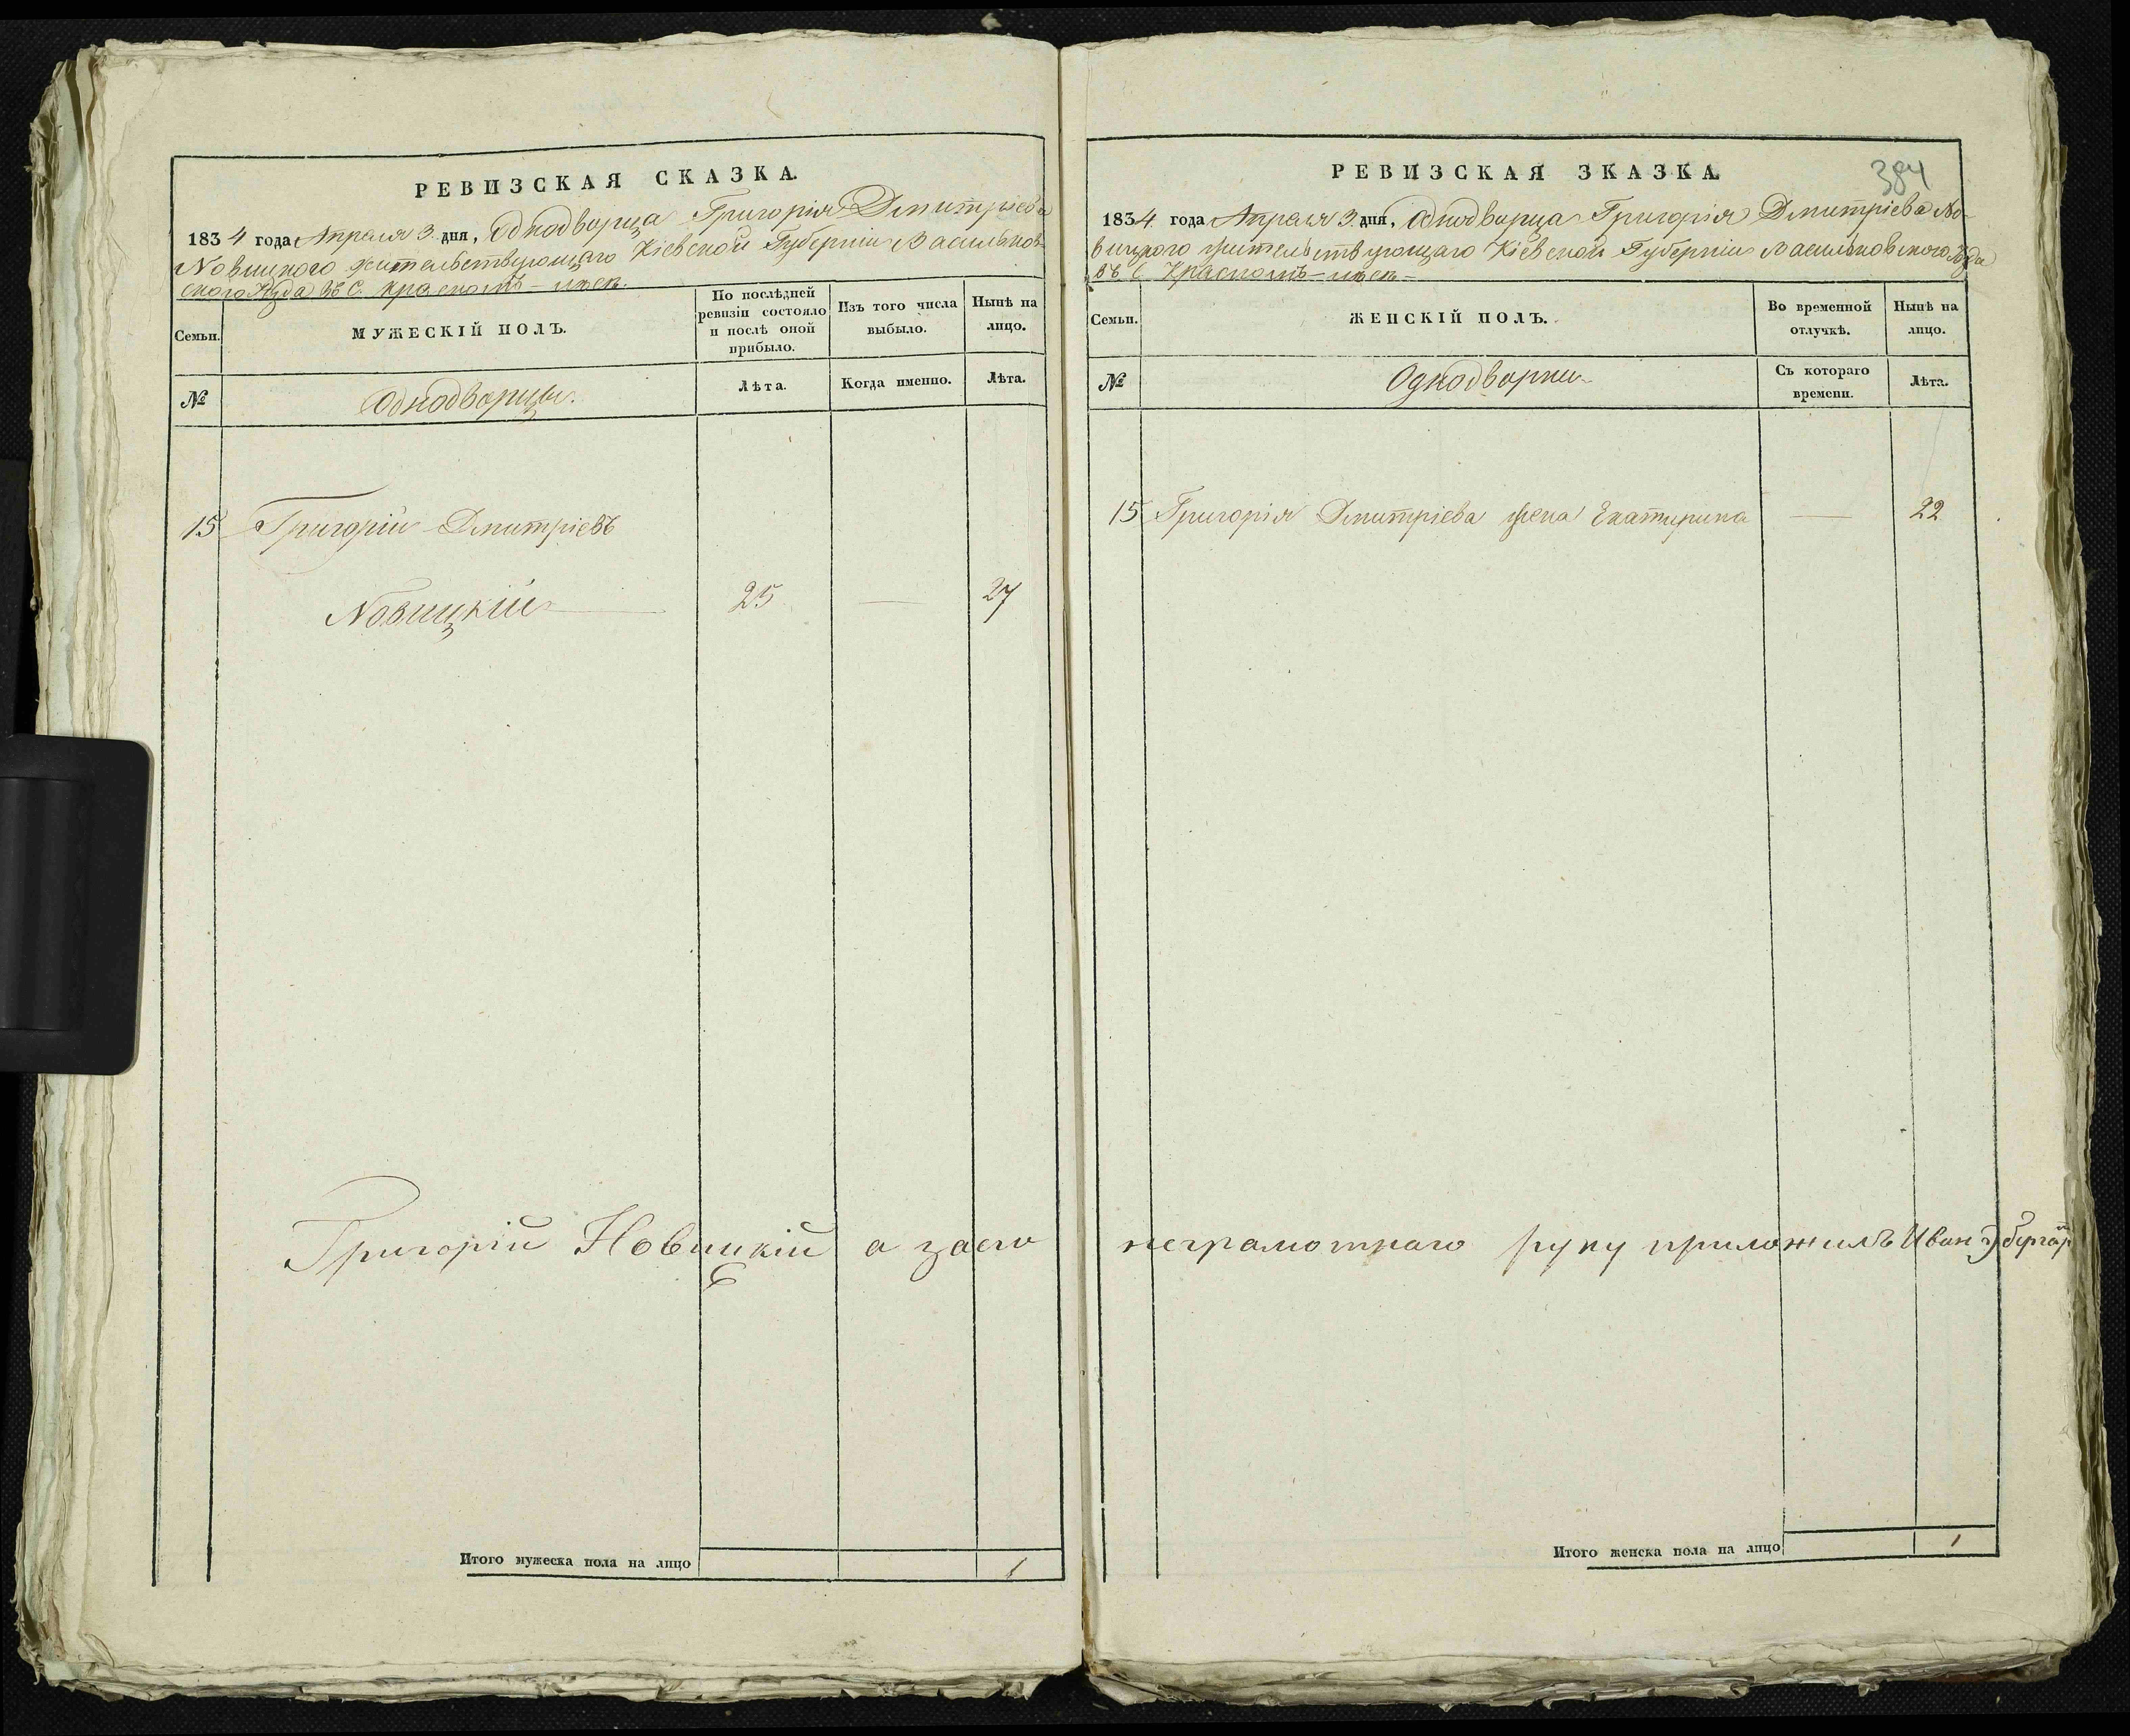 РЕВИЗСКАЯ СКАЗКА.
1834 года Апреля 3. дня, Однодворца Григорія Дмитріева
Новицкого жительствующаго Кіевской Губерніи Васильков-
ского Уѣзда въ С. Красномъ
Семьи.
МУЖЕСКІЙ ПОЛЪ.
По послѣдней
ревизіи состояло
и послѣ оной
прибыло.
Изъ того числа
выбыло.
Нынѣ на
лицо.
№
Однодворцы.
Лѣта.
Когда именно.
Лѣта.
15 Григорій Дмитріевъ
Новицкій 25 — 27
Григорій Новицкій а заего
Итого мужеска пола на лицо 1
384
РЕВИЗСКАЯ ЗКАЗКА
1834 года Апреля 3. дня, Однодворца Григорія Дмитріева Но-
вицкого жительствующаго Кіевской Губерніи Васильковского
въ С Красномъ
Семьи.
ЖЕНСКІЙ ПОЛЪ.
Во временной
отлучкѣ.
Нынѣ на
лицо.
№
Однодворки
Съ котораго
времени.
Лѣта.
15 Григорія Дмитріева жена Екатерина — 22
неграмотнаго руку приложилъ Иван
Итого женска пола на лицо 1